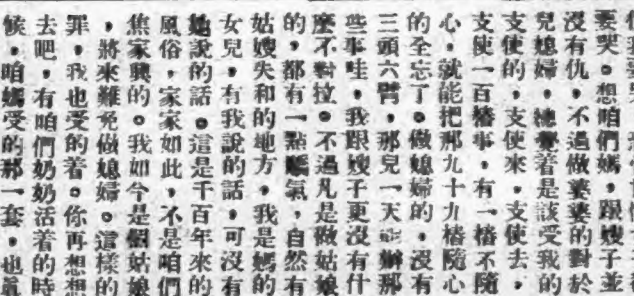 要哭。想咱們媽，跟嫂子並
沒有仇，不過做婆婆的對於
兒媳婦，總覺着是該受我的
支使的，支使來，支使去，
支使一百樁事，有一樁不隨
心，就能把那九十九樁隨心
的全忘了。做媳婦的，沒有
三頭六臂，那兒一天能辦那
些事哇，我跟嫂子更沒有什
麼不對拉。不過凡是做姑娘
的，都有一點驕氣，自然有
姑嫂失和的地方，我是媽的
女兒，有我說的話，可沒有
她說的話。這是千百年來的
風俗，家家如此，不是咱們
焦家興的。我如今是個姑娘
，將來難免做媳婦。這樣的
罪，我也受的着。你再想想
去吧，有咱們奶奶活着的時
候，咱媽受的那一套，也真